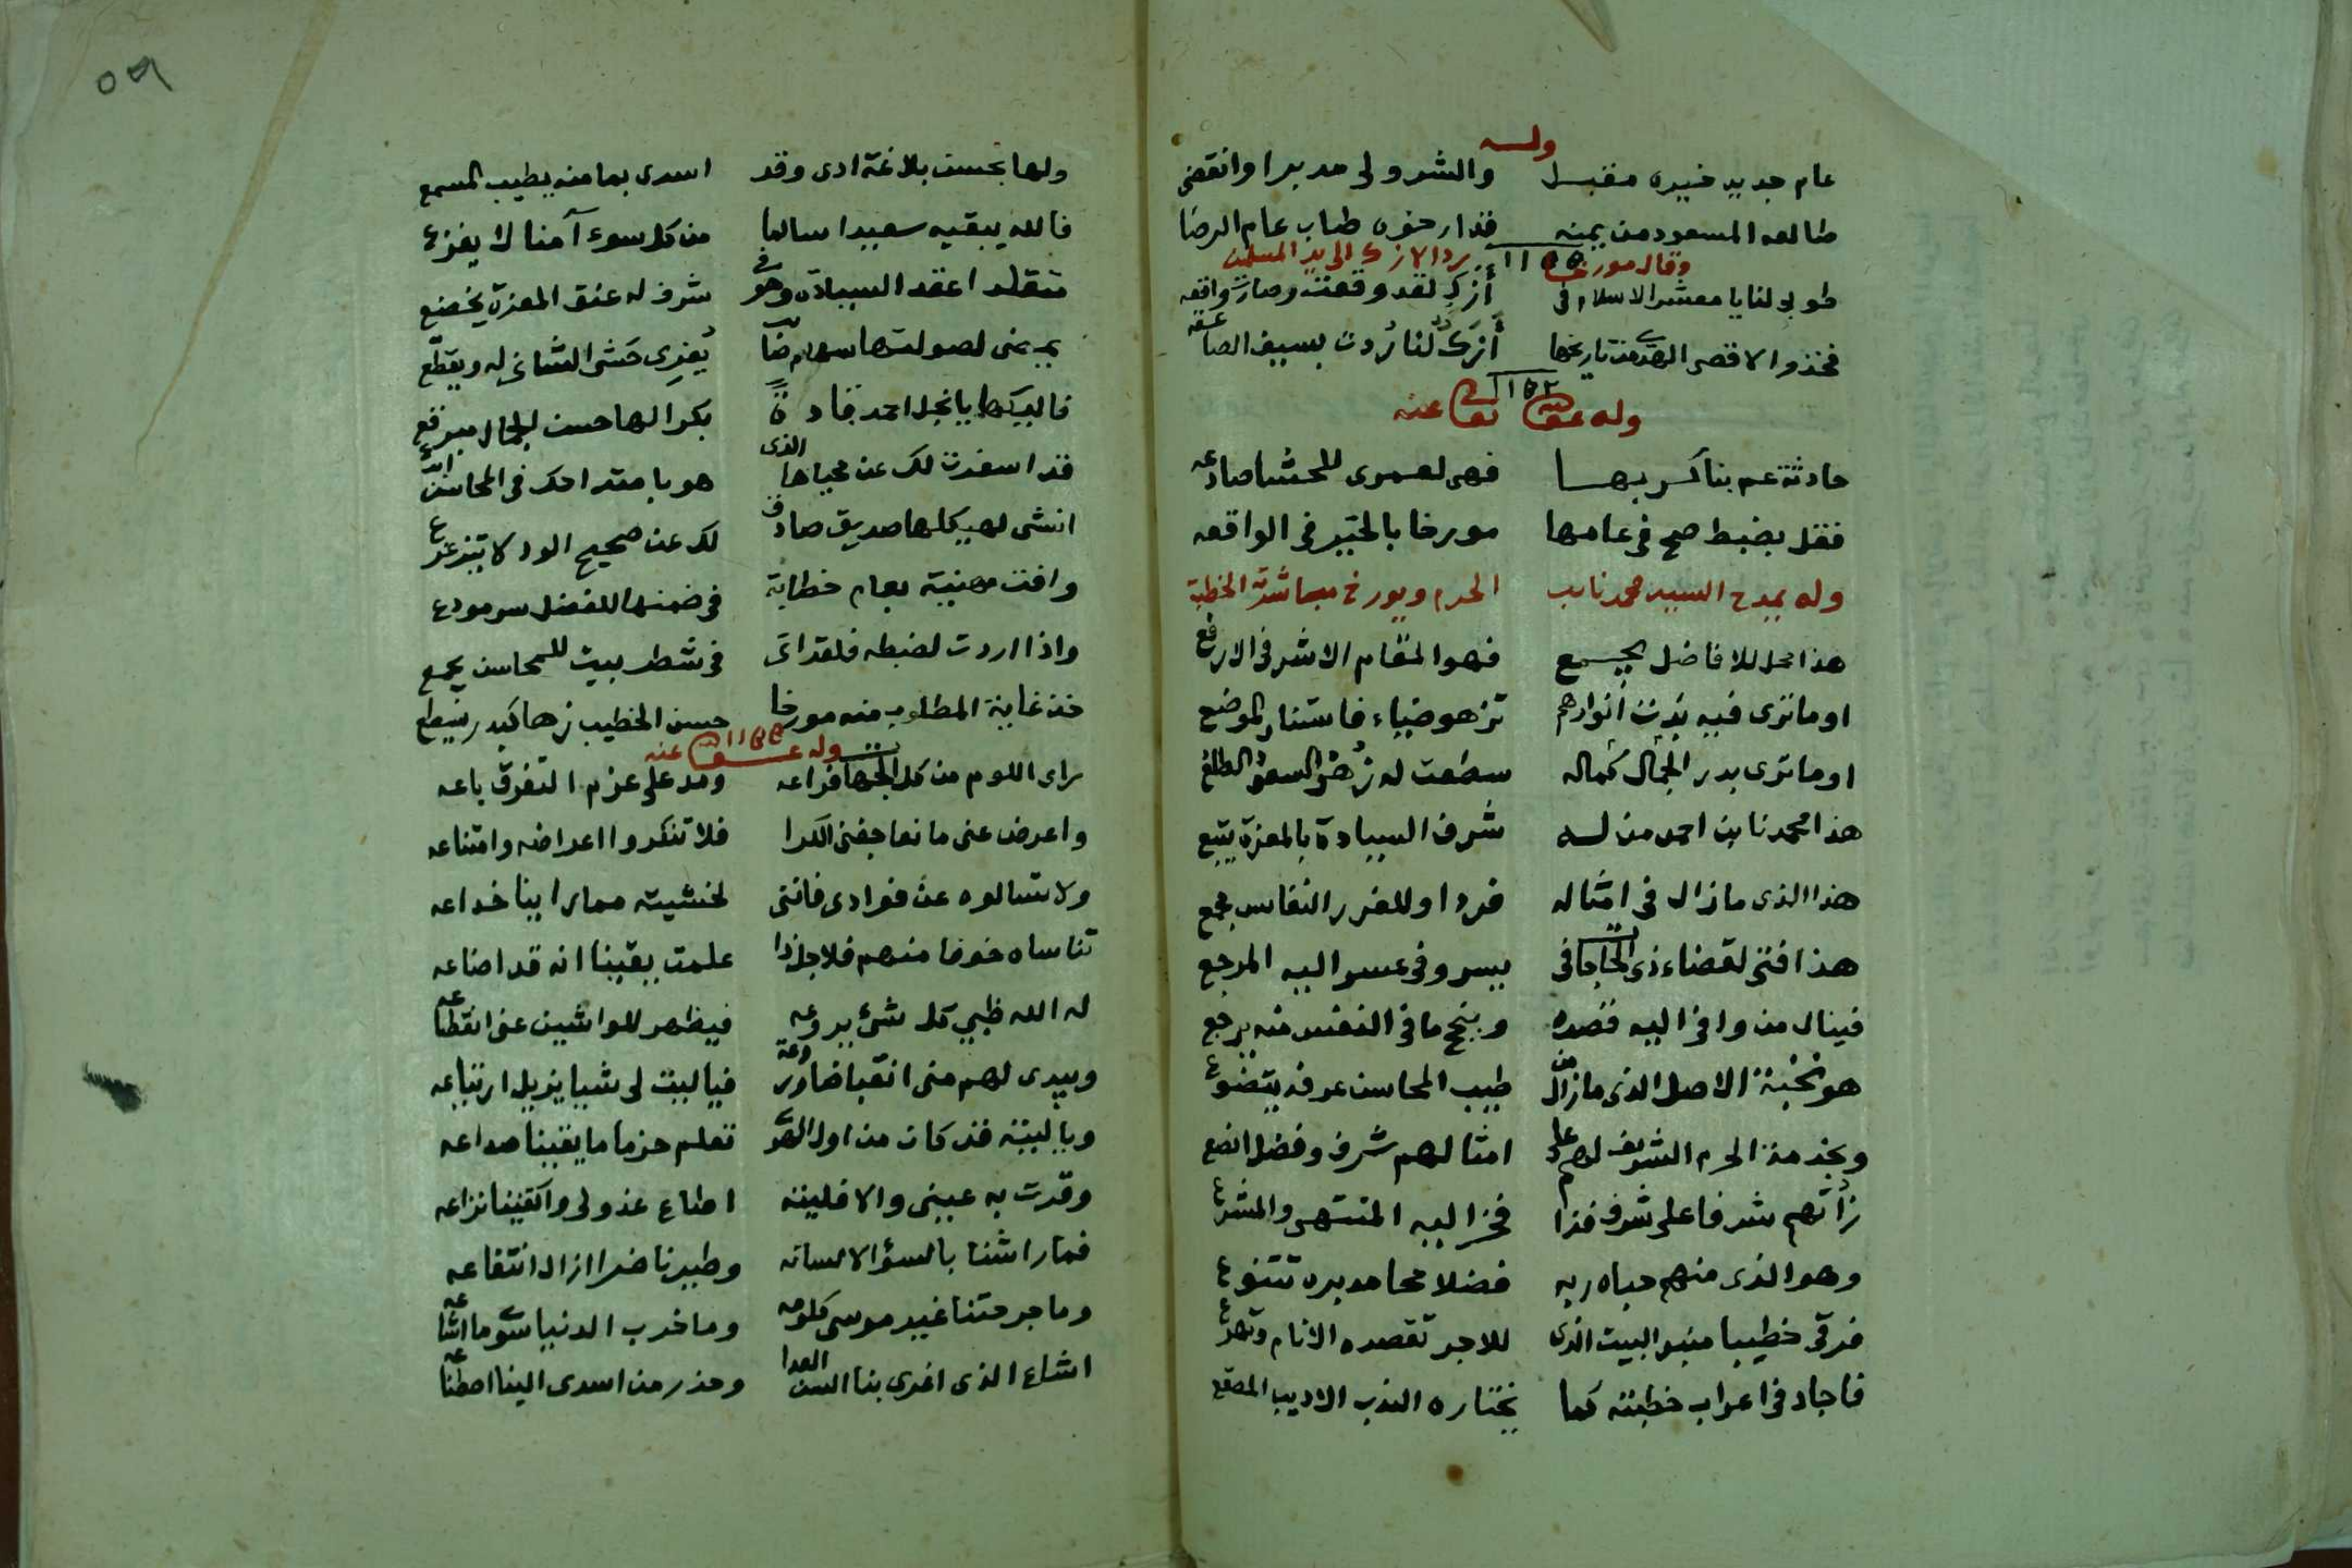 وله
عام جديد خيره مقبل والشر ولى مدبرا وانقضى
طالعه المسعود من يمنه قد ارخوه طاب عام الرضا
وقال مورخا ١١٥٥ رد الازك الى يد المسلمين
طوبى لنا يا معشر الاسلام في أزك لقد وقعت وصارت واقعه
فخذوا لاقصى العد من تاريخها أزك لنا ردت بسيف الصاعقه
١١٥٢
وله عفى الله تعالى عنه
حادثة عم بنا كربها فهى لعمرى للحشا صادعه
فقل بضبط صح في عامها مورخا بالخير في الواقعه
وله يمدح السيد محمد نايب الحرم ويورخ مباشرته الخطبة
هذا محل للافاضل يجمع فهو المقام الاشرف الارفع
او ما ترى فيه بدت انوارهم تزهو ضياء فاستنار الموضع
او ما ترى بدر الجمال كماله سطعت له زهر السعود الطلع
هذا محمد نا بن احمد من له شرف السيادة بالمعزة يتبع
هذا الذى ما زال في امثاله فردا وللغرر النفاس مجمع
هذا فتى لقضاء ذى الحاجات في يسر وفي عسر اليه المرجع
فينال من وافى اليه قصده وبنجح ما في النفس منه يرجع
هو نخبة الاصل الذى ما زال من طيب المحاسن عرفه يتضوع
وبخدمة الحرم الشريف لهم على امثالهم شرف وفضل انصع
زاتهم شرفا على شرف فذا فخر اليه المنتهى والمشرع
وهو الذى منهم حباه ربه فضلا محامد بره تتنوع
فرقى خطيبا منبر البيت الذى للاجر تقصده الانام وتهرع
فاجاد في اعراب خطبته كما يختاره الندب الاديب المصقع
٥٦
ولها بحسن بلاغة ادى وقد اسدى بما منه يطيب المسمع
فالله يبقيه سعيدا سالما من كل سوء آمنا لا يفزع
متقلدا عقد السيادة وهو في شرف له عنق المعزة يخضع
بيد يمنى لصولتها سهام مضا يفرى حشى الشانى له ويقطع
فاليكها يا نجل احمد غادة بكرا لها حسن الجمال مبرقع
قد اسفرت لك عن محياها الذى هو بامتداحك في المحاسن ابدع
انشى لهيكلها صديق صادق لك عن صحيح الود لا يتزعزع
وافت مهنية بعام خطابة في ضمنها للفضل سر مودع
واذا اردت لضبطه فلقد اتى في شطر بيت للمحاسن يجمع
خذ غاية المطلوب منه مورخا حسن الخطيب زها كبدر يسطع
وله عفى الله عنه ١١٥٥
راى اللوم من كل الجهات فراعه ومد على عزم التفرق باعه
واعرض عنى مانعا جفنى الكرا فلا تنكروا اعراضه وامتناعه
ولا تسالوه عن فوادى فانني لخشيت مما رابنا خداعه
تناساه خوفا منهم فلاجل ذا علمت يقينا انه قد اضاعه
له الله ظبي كل شئ يروعه فيظهر للواشين عنى انقطاعه
ويبدى لهم منى انقباضا وروعة فيا ليت لى شيا يزيل ارتياعه
ويا ليته قد كان من اول الهوى تعلم حزما ما يقينا صداعه
وقرت به عينى والا فليته اطاع عذولى واكتفينا نزاعه
فما راشنا بالسؤ الا لسانه وطيرنا ضرا ازال انتفاعه
وما جرحتنا غير موسى كلومه وما خرب الدنيا سوى ما اشاعه
اشاع الذى اغرى بنا السن العدا وحذر من اسدى الينا اصطناعه